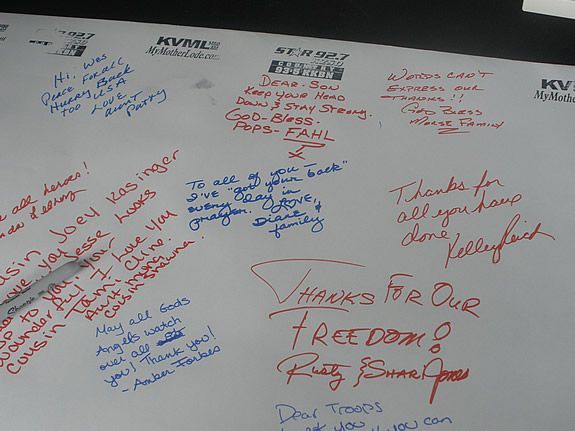 KVML
MyMotherLode.com
STAR 92.7
COUNTRY
93.9 KKBN
KV
MyMother
Hi, Wes
Peace For all
Hurry Back
too USA
Love
Aunt
Patty
DEAR. SON
KEEP YOUR HEAD
DOWN & STAY STRONG.
GOD-BLESS.
POPS- FAHL
X
WORDS CAN'T
EXPRESS OUR
THANKS!!
GOD BLESS
MORSE FAMILY
all heroes!
To all of you I
I've "got your back"
every day in
prayer. LOVE,
Diane &
family
Thanks for
all you have
done
Kelley Reich
Cousin Joey Kasinger
you
Looks
up to you, your
Wonderful I Love You
Cousin Tami Cline.
Aunt
Cousin Shawna.
May all Gods
Angels watch
over all
you! Thank you!
- Amber Forbes
THANKS FOR OUR
FREEDOM!
Rusty & SHARI Jones
Dear Troops
you can